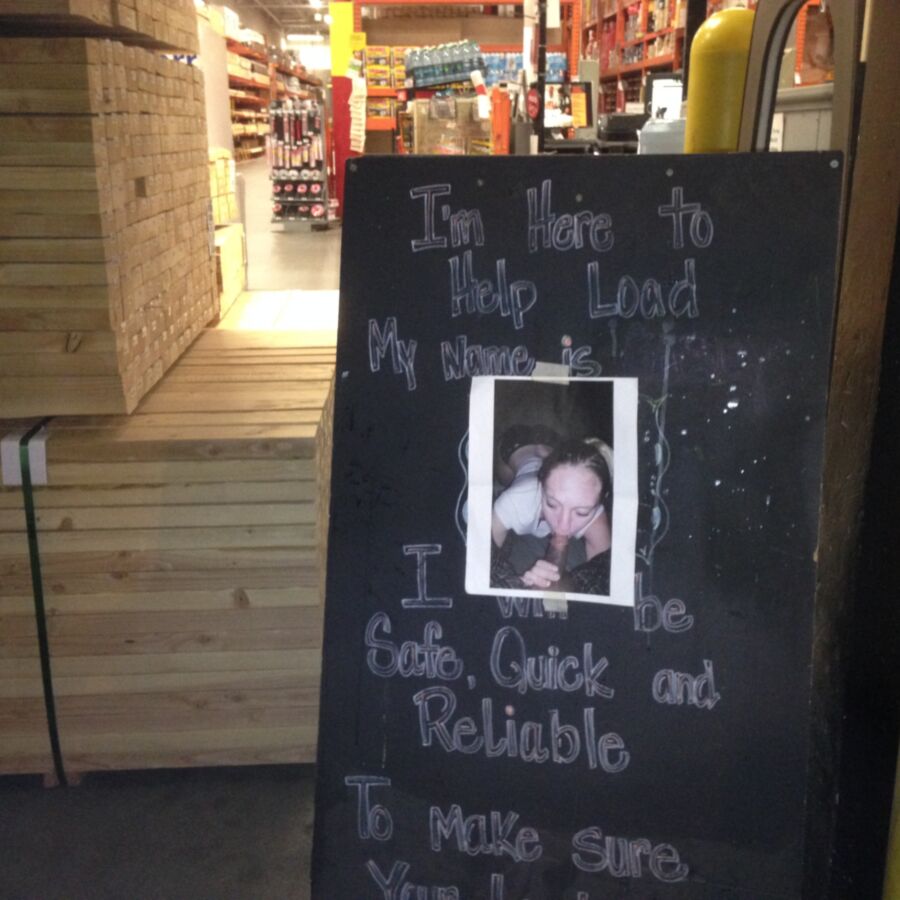 I'm Here to
Help Load
My Name is
I will be
Safe, Quick and
Reliable
To Make Sure
Your